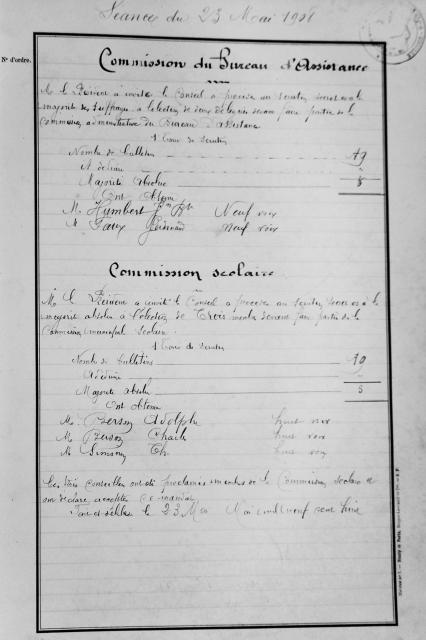 Séance du 23 Mai 1908
N° d'ordre.
Commission du Bureau d'Assistance
M. le à invité le Conseil à procéder au scrutin secret et à la
majorité des suffrages à l'élection de deux délégués devant faire partie de la
Commission administrative du Bureau d'assistance
1 Tour de scrutin
Nombre de bulletins
A déduire
Majorité absolue
Ont obtenu
M. Humbert J. Bte Neuf voix
M. Ferdinand Neuf voix
Commission scolaire
M. le a invité le Conseil a procéder au scrutin secret et à la
majorité absolue à l'élection de Trois membres devant faire partie de la
Commission municipale scolaire
1 Tour de scrutin
Nombre de bulletins
A déduire
Majorité absolue
Ont obtenu
M. Adolphe huit voix
M. Charles huit voix
M. Simson Th. huit voix
Les trois conseillers ont été proclamés membres de la Commission scolaire et
ont déclaré accepter ce mandat
Fait et délibéré le 23 Mai Mil neuf cent huit